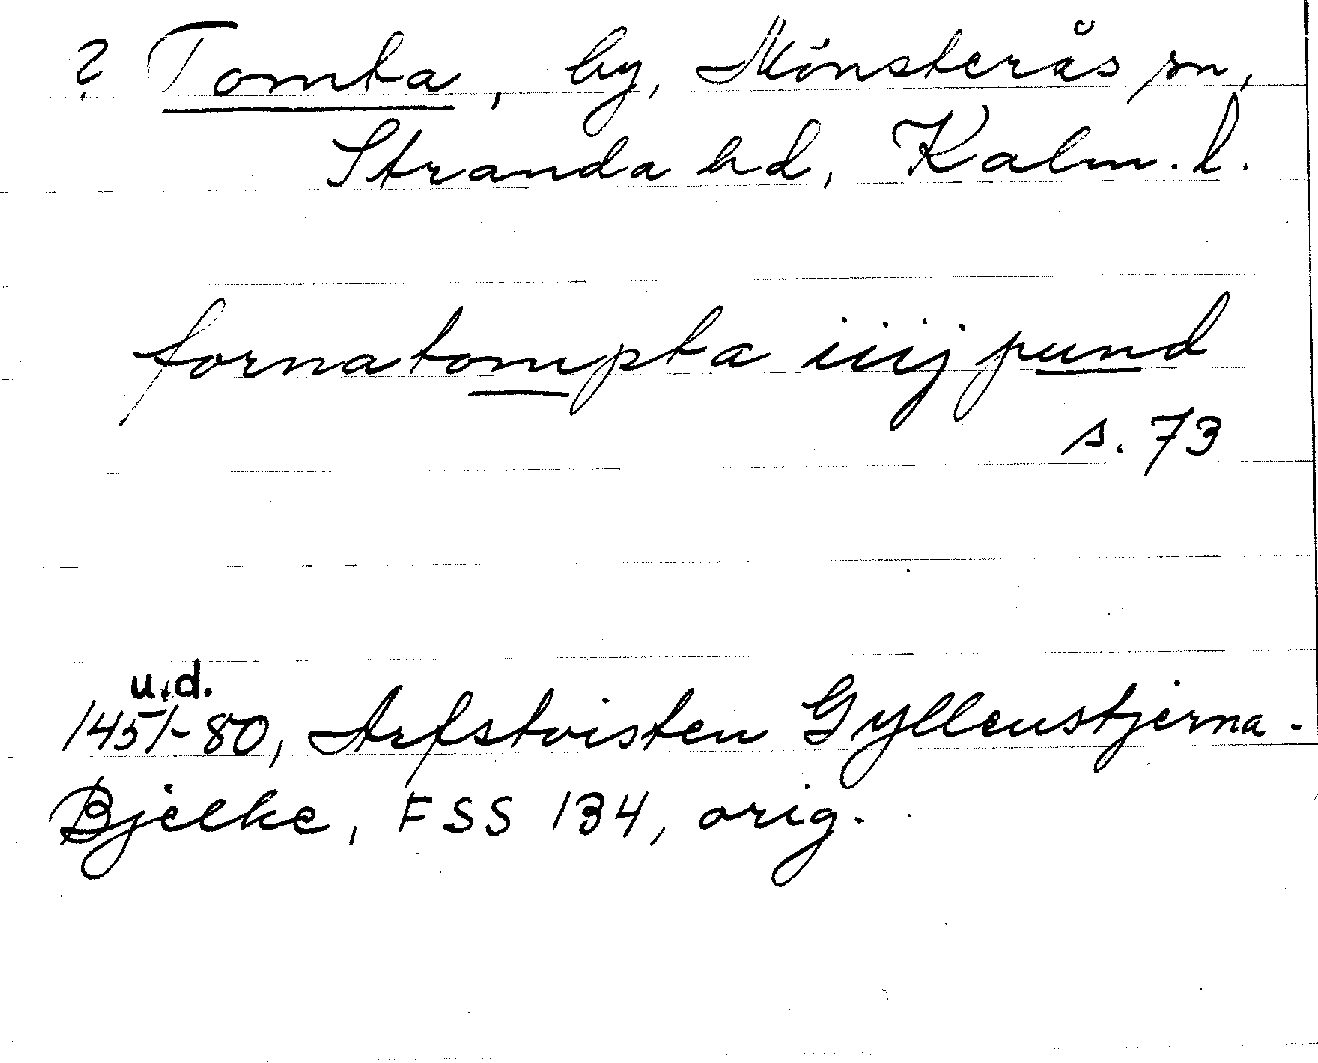 ? Tomta, by, Mönsterås sn,
Stranda hd, Kalm. l.
fornatompta iiij pund
s. 73
u.d.
1451-80, Arfstvisten Gyllenstjerna-
Bjelke, FSS 134, orig.